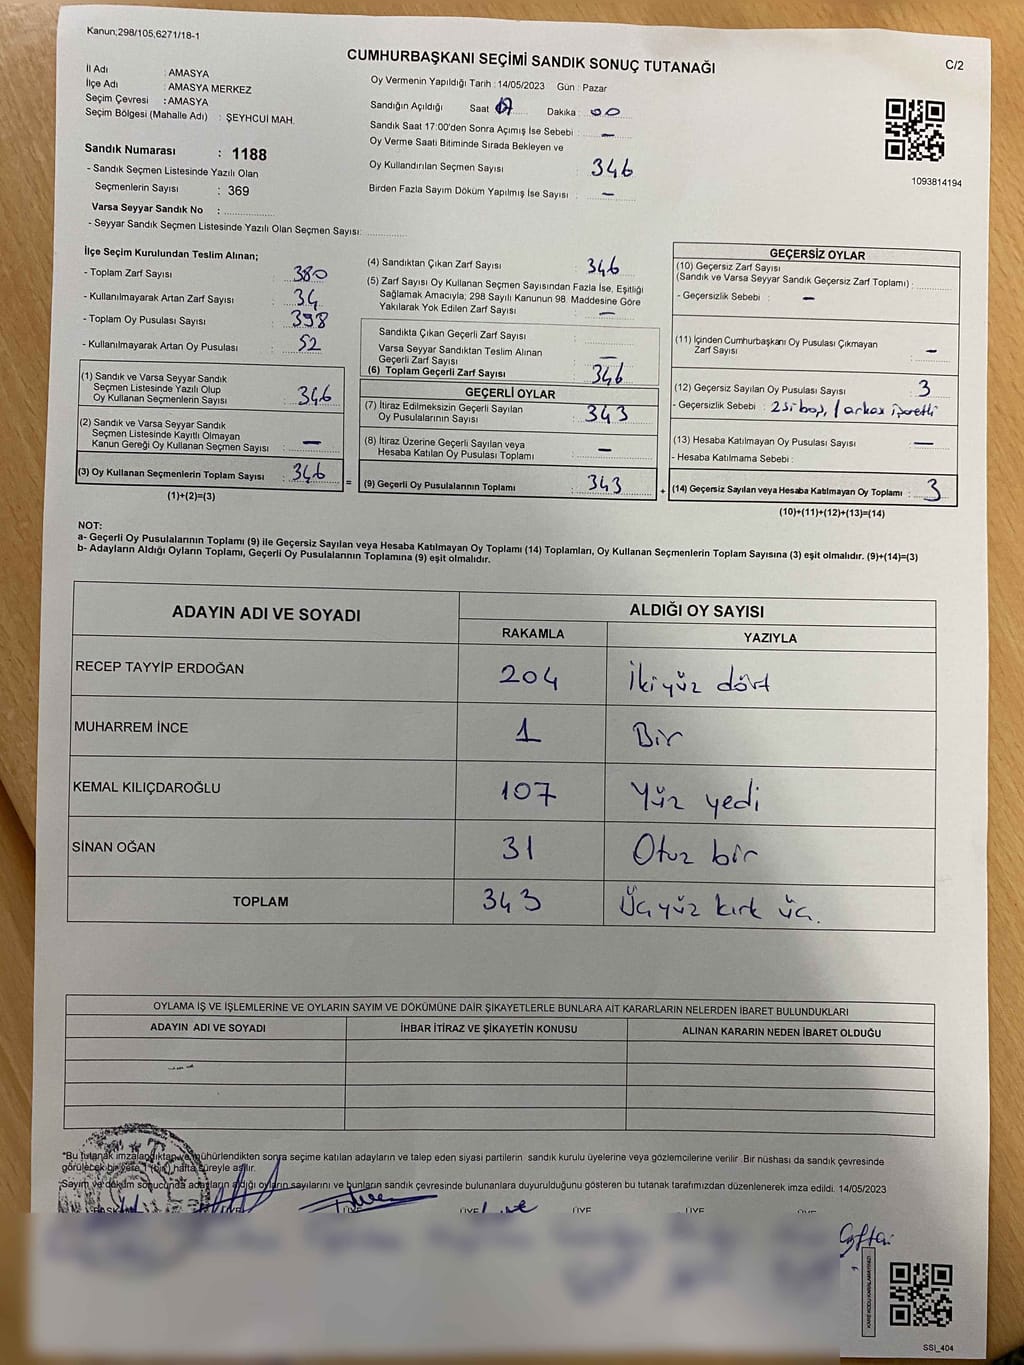 Kanun,298/105,6271/18-1
CUMHURBAŞKANI SEÇİMİ SANDIK SONUÇ TUTANAĞI
C/2
İl Adı : AMASYA
İlçe Adı : AMASYA MERKEZ
Seçim Çevresi : AMASYA
Seçim Bölgesi (Mahalle Adı) : ŞEYHCUİ MAH.
Sandık Numarası : 1188
- Sandık Seçmen Listesinde Yazılı Olan
Seçmenlerin Sayısı : 369
Varsa Seyyar Sandık No :
- Seyyar Sandık Seçmen Listesinde Yazılı Olan Seçmen Sayısı:
Oy Vermenin Yapıldığı Tarih : 14/05/2023 Gün : Pazar
Sandığın Açıldığı Saat 17 Dakika : 00
Sandık Saat 17:00'den Sonra Açımış İse Sebebi : —
Oy Verme Saati Bitiminde Sırada Bekleyen ve
Oy Kullandırılan Seçmen Sayısı : 346
Birden Fazla Sayım Döküm Yapılmış İse Sayısı : —
1093814194
İlçe Seçim Kurulundan Teslim Alınan;
- Toplam Zarf Sayısı : 380
- Kullanılmayarak Artan Zarf Sayısı : 34
- Toplam Oy Pusulası Sayısı : 398
- Kullanılmayarak Artan Oy Pusulası : 52
(1) Sandık ve Varsa Seyyar Sandık
Seçmen Listesinde Yazılı Olup
Oy Kullanan Seçmenlerin Sayısı : 346
(2) Sandık ve Varsa Seyyar Sandık
Seçmen Listesinde Kayıtlı Olmayan
Kanun Gereği Oy Kullanan Seçmen Sayısı : —
(3) Oy Kullanan Seçmenlerin Toplam Sayısı : 346
(1)+(2)=(3)
=
(4) Sandıktan Çıkan Zarf Sayısı : 346
(5) Zarf Sayısı Oy Kullanan Seçmen Sayısından Fazla İse, Eşitliği
Sağlamak Amacıyla; 298 Sayılı Kanunun 98. Maddesine Göre
Yakılarak Yok Edilen Zarf Sayısı : —
Sandıkta Çıkan Geçerli Zarf Sayısı :
Varsa Seyyar Sandıktan Teslim Alınan
Geçerli Zarf Sayısı : —
(6) Toplam Geçerli Zarf Sayısı : 346
GEÇERLİ OYLAR
(7) İtiraz Edilmeksizin Geçerli Sayılan
Oy Pusulalarının Sayısı : 343
(8) İtiraz Üzerine Geçerli Sayılan veya
Hesaba Katılan Oy Pusulası Toplamı : —
(9) Geçerli Oy Pusulalarının Toplamı : 343
+
GEÇERSİZ OYLAR
(10) Geçersiz Zarf Sayısı
(Sandık ve Varsa Seyyar Sandık Geçersiz Zarf Toplamı) :
- Geçersizlik Sebebi : —
(11) İçinden Cumhurbaşkanı Oy Pusulası Çıkmayan
Zarf Sayısı : —
(12) Geçersiz Sayılan Oy Pusulası Sayısı : 3
- Geçersizlik Sebebi : 2si boş, 1 arkası işaretli
(13) Hesaba Katılmayan Oy Pusulası Sayısı : —
- Hesaba Katılmama Sebebi :
(14) Geçersiz Sayılan veya Hesaba Katılmayan Oy Toplamı : 3
(10)+(11)+(12)+(13)=(14)
NOT:
a- Geçerli Oy Pusulalarının Toplamı (9) ile Geçersiz Sayılan veya Hesaba Katılmayan Oy Toplamı (14) Toplamları, Oy Kullanan Seçmenlerin Toplam Sayısına (3) eşit olmalıdır. (9)+(14)=(3)
b- Adayların Aldığı Oyların Toplamı, Geçerli Oy Pusulalarının Toplamına (9) eşit olmalıdır.
ADAYIN ADI VE SOYADI
ALDIĞI OY SAYISI
RAKAMLA YAZIYLA
RECEP TAYYİP ERDOĞAN 204 İkiyüz dört
MUHARREM İNCE 1 Bir
KEMAL KILIÇDAROĞLU 107 Yüz yedi
SİNAN OĞAN 31 Otuz bir
TOPLAM 343 Üçyüz kırk üç.
OYLAMA İŞ VE İŞLEMLERİNE VE OYLARIN SAYIM VE DÖKÜMÜNE DAİR ŞİKAYETLERLE BUNLARA AİT KARARLARIN NELERDEN İBARET BULUNDUKLARI
ADAYIN ADI VE SOYADI İHBAR İTİRAZ VE ŞİKAYETİN KONUSU ALINAN KARARIN NEDEN İBARET OLDUĞU
*Bu tutanak imzalandıktan ve mühürlendikten sonra seçime katılan adayların ve talep eden siyasi partilerin sandık kurulu üyelerine veya gözlemcilerine verilir .Bir nüshası da sandık çevresinde
görülecek bir yere 1 (bir) hafta süreyle asılır.
*Sayım ve döküm sonucunda adayların aldığı oyların sayılarını ve bunların sandık çevresinde bulunanlara duyurulduğunu gösteren bu tutanak tarafımızdan düzenlenerek imza edildi. 14/05/2023
BAŞKAN ÜYE ÜYE ÜYE ÜYE ÜYE
KARE KODU KARALAMAYINIZ!
SSI_404